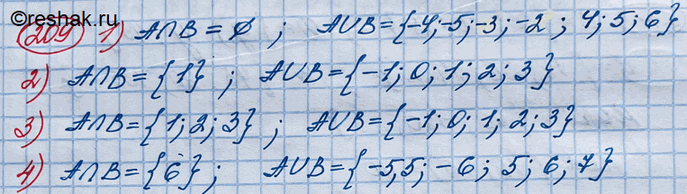 ©reshak.ru
209 1) A∩B=∅ ; A∪B={-4;-5;-3;-2 ; 4; 5; 6}
2) A∩B={1} ; A∪B={-1; 0; 1; 2; 3}
3) A∩B={1; 2; 3} ; A∪B={-1; 0; 1; 2; 3}
4) A∩B={6} ; A∪B={-5,5; -6; 5; 6; 7}